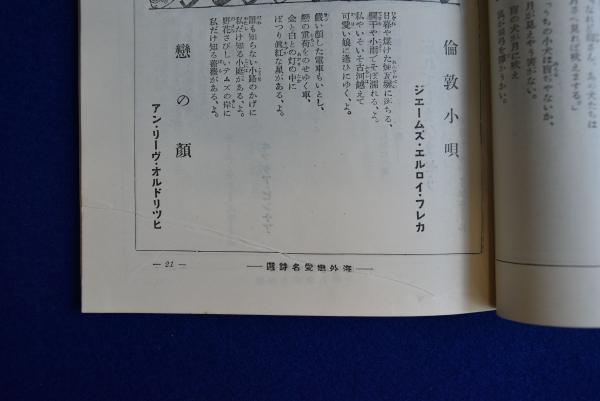 倫敦小唄
ジエームズ・エルロイ・フレカ
日暮や煤けた煉瓦塀に落ちる、
欄干や小雨でそぼ濡れる、よ。
私やいそいそ古河越えて
可愛い娘に逢ひにゆく、よ。
戲い顏した電車もいとし、
戀の重荷をのせゆく車、
金と白との灯の中に
ぽつり眞紅な星がある、よ。
誰も知らない小路のかげに
私だけ知る小庭がある、よ。
さびしいテムズの岸に
私だけ知る薔薇がある、よ。
戀の顏
アン・リーヴ・オルドリツヒ
— 21 —
—選詩名愛戀外海—
「うちの小犬は盲ぢやないか、
月が見えやう筈がない。
盲の犬が月に吠え